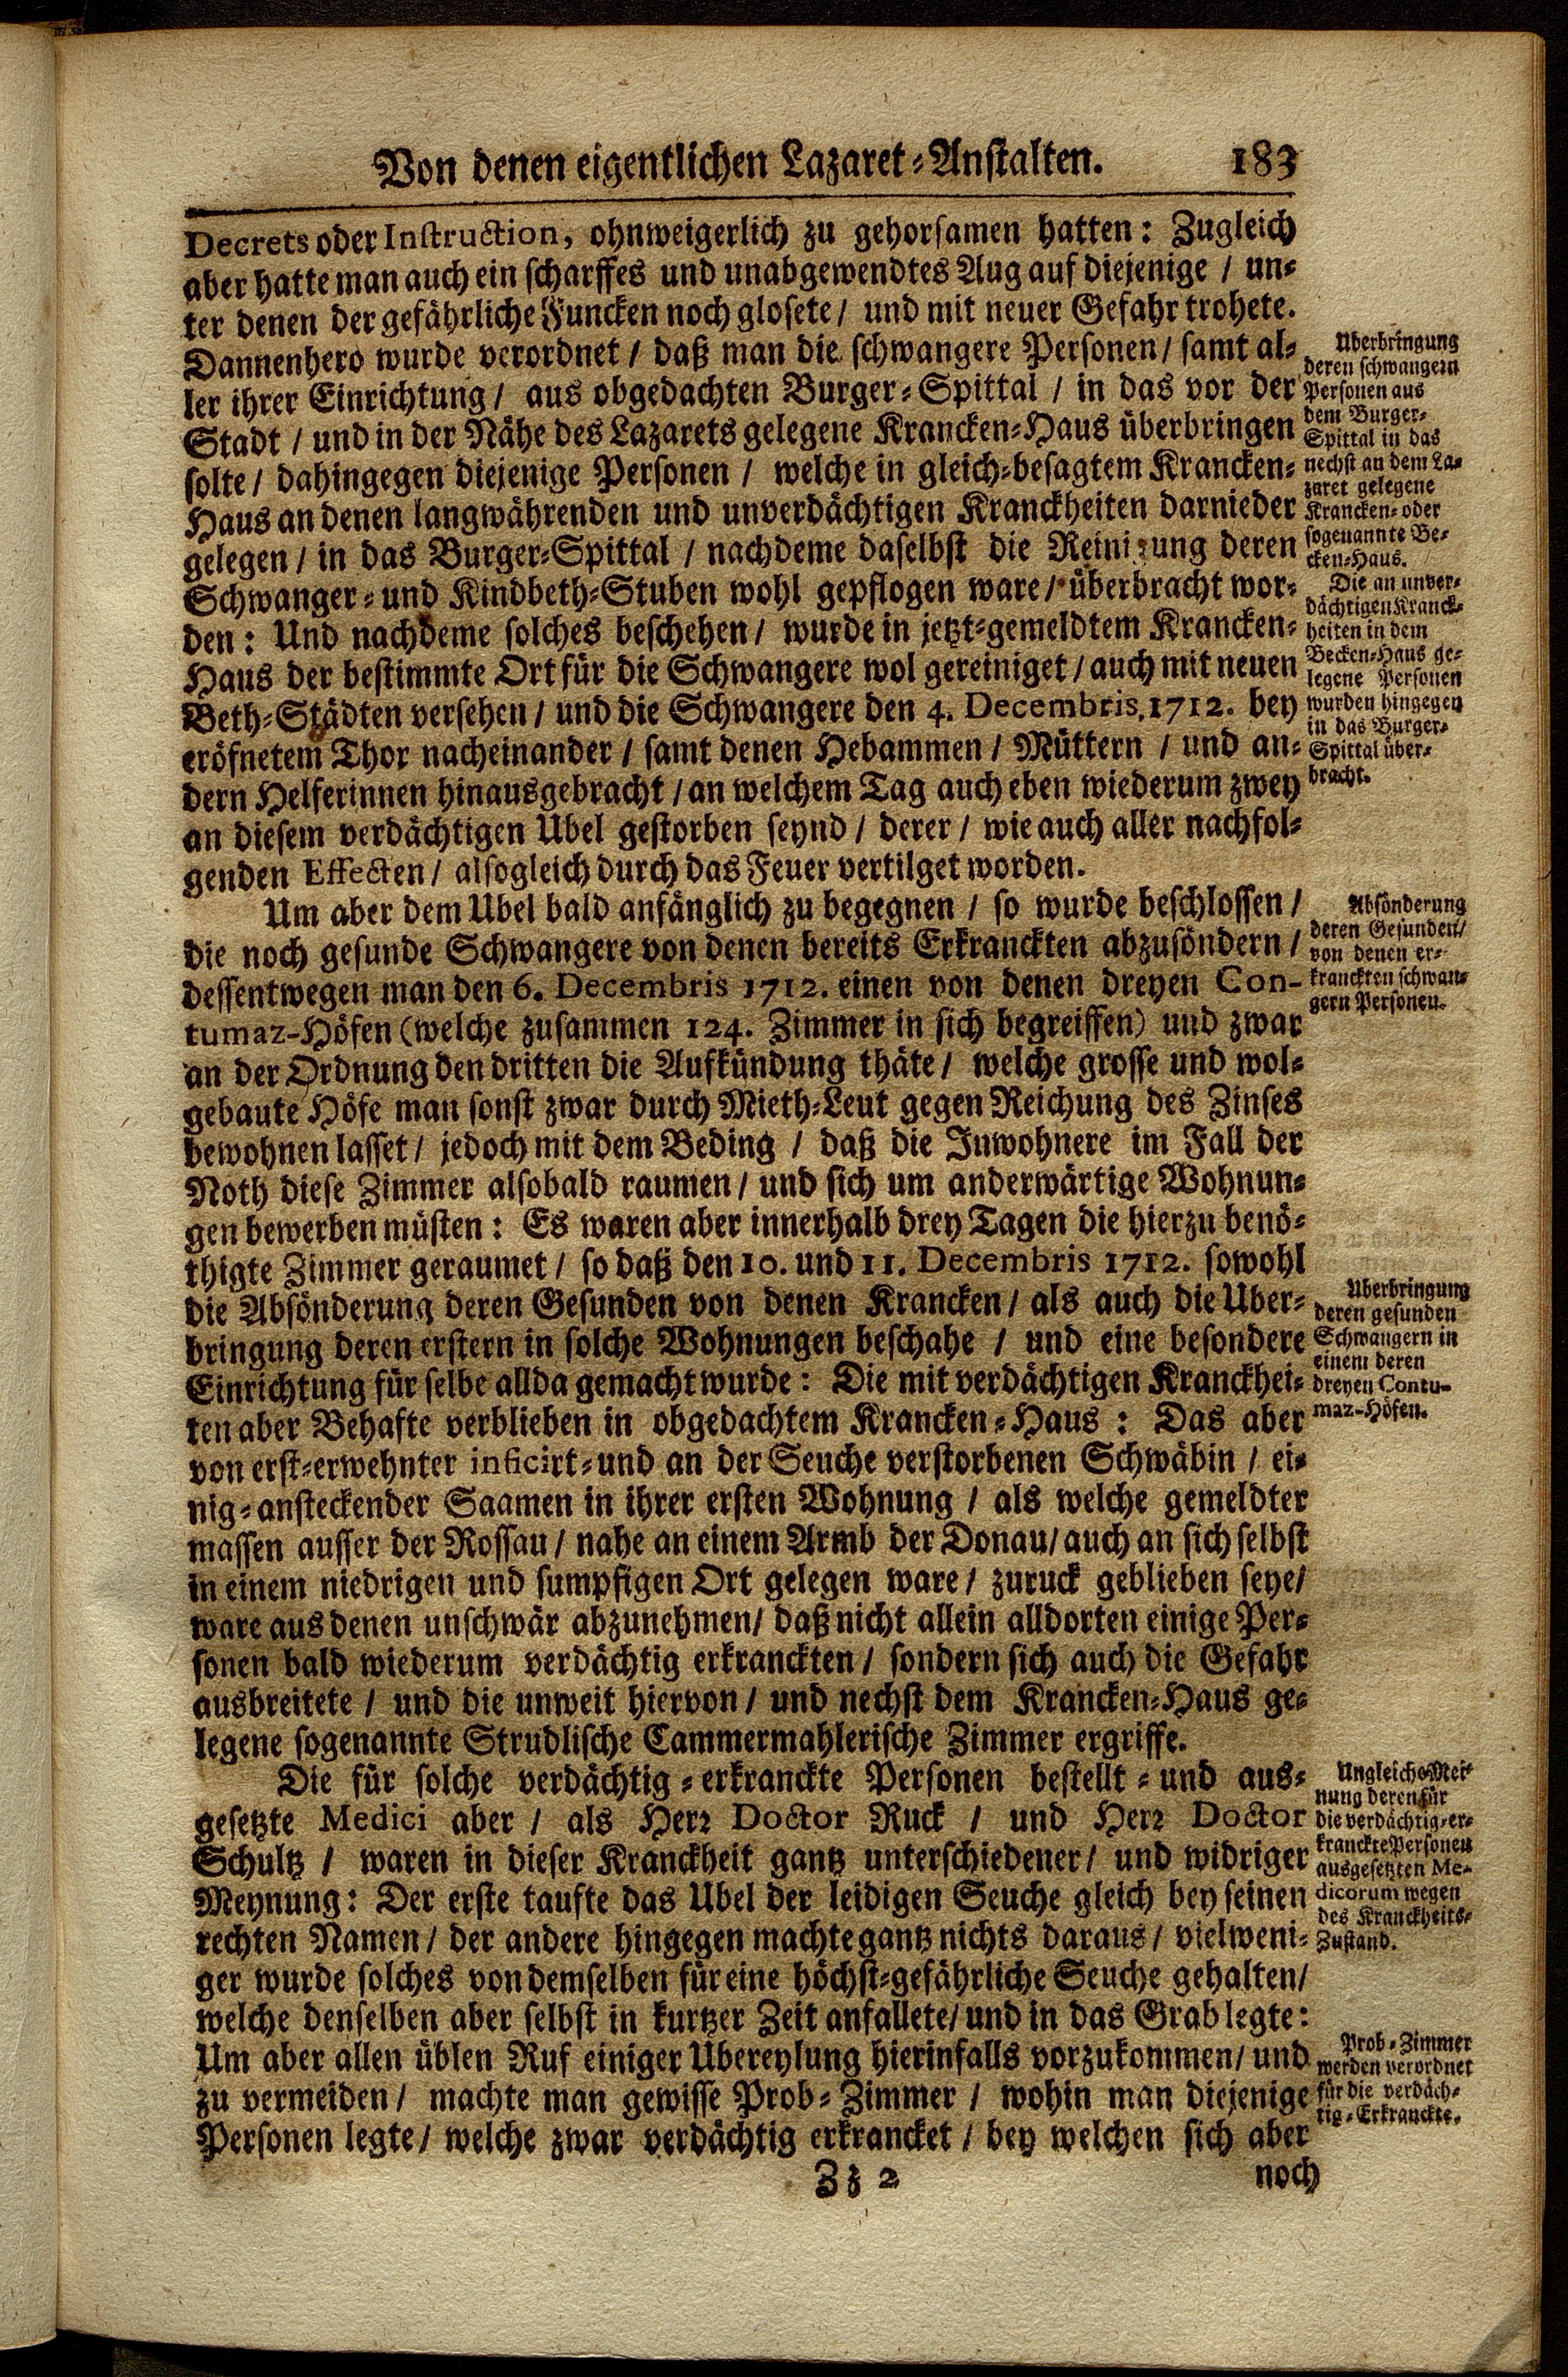 Von denen eigentlichen Lazaret-Anstalten. 183
Decrets oder Instruction, ohnweigerlich zu gehorsamen hatten: Zugleich
aber hatte man auch ein scharffes und unabgewendtes Aug auf diejenige / un-
ter denen der gefährliche Funcken noch glosete / und mit neuer Gefahr trohete.
Dannenhero wurde verordnet / daß man die schwangere Personen / samt al-
ler ihrer Einrichtung / aus obgedachten Burger-Spittal / in das vor der
Stadt / und in der Nähe des Lazarets gelegene Krancken-Haus überbringen
solte / dahingegen diejenige Personen / welche in gleich-besagtem Krancken-
Haus an denen langwährenden und unverdächtigen Kranckheiten darnieder
gelegen / in das Burger-Spittal / nachdeme daselbst die Reinigung deren
Schwanger- und Kindbeth-Stuben wohl gepflogen ware / überbracht wor-
den: Und nachdeme solches beschehen / wurde in jetzt-gemeldtem Krancken-
Haus der bestimmte Ort für die Schwangere wol gereiniget / auch mit neuen
Beth-Städten versehen / und die Schwangere den 4. Decembris, 1712. bey
eröfnetem Thor nacheinander / samt denen Hebammen / Müttern / und an-
dern Helferinnen hinausgebracht / an welchem Tag auch eben wiederum zwey
an diesem verdächtigen Ubel gestorben seynd / derer / wie auch aller nachfol-
genden Effecten / alsogleich durch das Feuer vertilget worden.
Uberbringung
deren schwangern
Personen aus
dem Burger-
Spittal in das
nechst an dem La-
zaret gelegene
Krancken- oder
sogenannte Be-
cken-Haus.
Die an unver-
dächtigen Kranck-
heiten in dem
Becken-Haus ge-
legene Personen
wurden hingegen
in das Burger-
Spittal über-
bracht.
Um aber dem Ubel bald anfänglich zu begegnen / so wurde beschlossen /
die noch gesunde Schwangere von denen bereits Erkranckten abzusöndern /
dessentwegen man den 6. Decembris 1712. einen von denen dreyen Con-
tumaz-Höfen (welche zusammen 124. Zimmer in sich begreiffen) und zwar
an der Ordnung den dritten die Aufkündung thäte / welche grosse und wol-
gebaute Höfe man sonst zwar durch Mieth-Leut gegen Reichung des Zinses
bewohnen lasset / jedoch mit dem Beding / daß die Inwohnere im Fall der
Noth diese Zimmer alsobald raumen / und sich um anderwärtige Wohnun-
gen bewerben müsten: Es waren aber innerhalb drey Tagen die hierzu benö-
thigte Zimmer geraumet / so daß den 10. und 11. Decembris 1712. sowohl
die Absönderung deren Gesunden von denen Krancken / als auch die Uber-
bringung deren erstern in solche Wohnungen beschahe / und eine besondere
Einrichtung für selbe allda gemacht wurde: Die mit verdächtigen Kranckhei-
ten aber Behafte verblieben in obgedachtem Krancken-Haus: Das aber
von erst-erwehnter inficirt- und an der Seuche verstorbenen Schwäbin / ei-
nig-ansteckender Saamen in ihrer ersten Wohnung / als welche gemeldter
massen ausser der Rossau / nahe an einem Armb der Donau / auch an sich selbst
in einem niedrigen und sumpfigen Ort gelegen ware / zuruck geblieben seye /
ware aus denen unschwär abzunehmen / daß nicht allein alldorten einige Per-
sonen bald wiederum verdächtig erkranckten / sondern sich auch die Gefahr
ausbreitete / und die unweit hiervon / und nechst dem Krancken-Haus ge-
legene sogenannte Strudlische Cammermahlerische Zimmer ergriffe.
Absönderung
deren Gesunden /
von denen er-
kranckten schwan-
gern Personen.
Uberbringung
deren gesunden
Schwangern in
einem deren
dreyen Contu-
maz-Höfen.
Die für solche verdächtig-erkranckte Personen bestellt- und aus-
gesetzte Medici aber / als Herr Doctor Ruck / und Herr Doctor
Schultz / waren in dieser Kranckheit gantz unterschiedener / und widriger
Meynung: Der erste taufte das Ubel der leidigen Seuche gleich bey seinen
rechten Namen / der andere hingegen machte gantz nichts daraus / vielweni-
ger wurde solches von demselben für eine höchst-gefährliche Seuche gehalten /
welche denselben aber selbst in kurtzer Zeit anfallete / und in das Grab legte:
Um aber allen üblen Ruf einiger Ubereylung hierinfalls vorzukommen / und
zu vermeiden / machte man gewisse Prob-Zimmer / wohin man diejenige
Personen legte / welche zwar verdächtig erkrancket / bey welchen sich aber
Ungleiche Mei-
nung deren für
die verdächtig-er-
kranckte Personen
ausgesetzten Me-
dicorum wegen
des Kranckheits-
Zustand.
Prob-Zimmer
werden verordnet
für die verdäch-
tig-Erkranckte.
Zz 2 noch